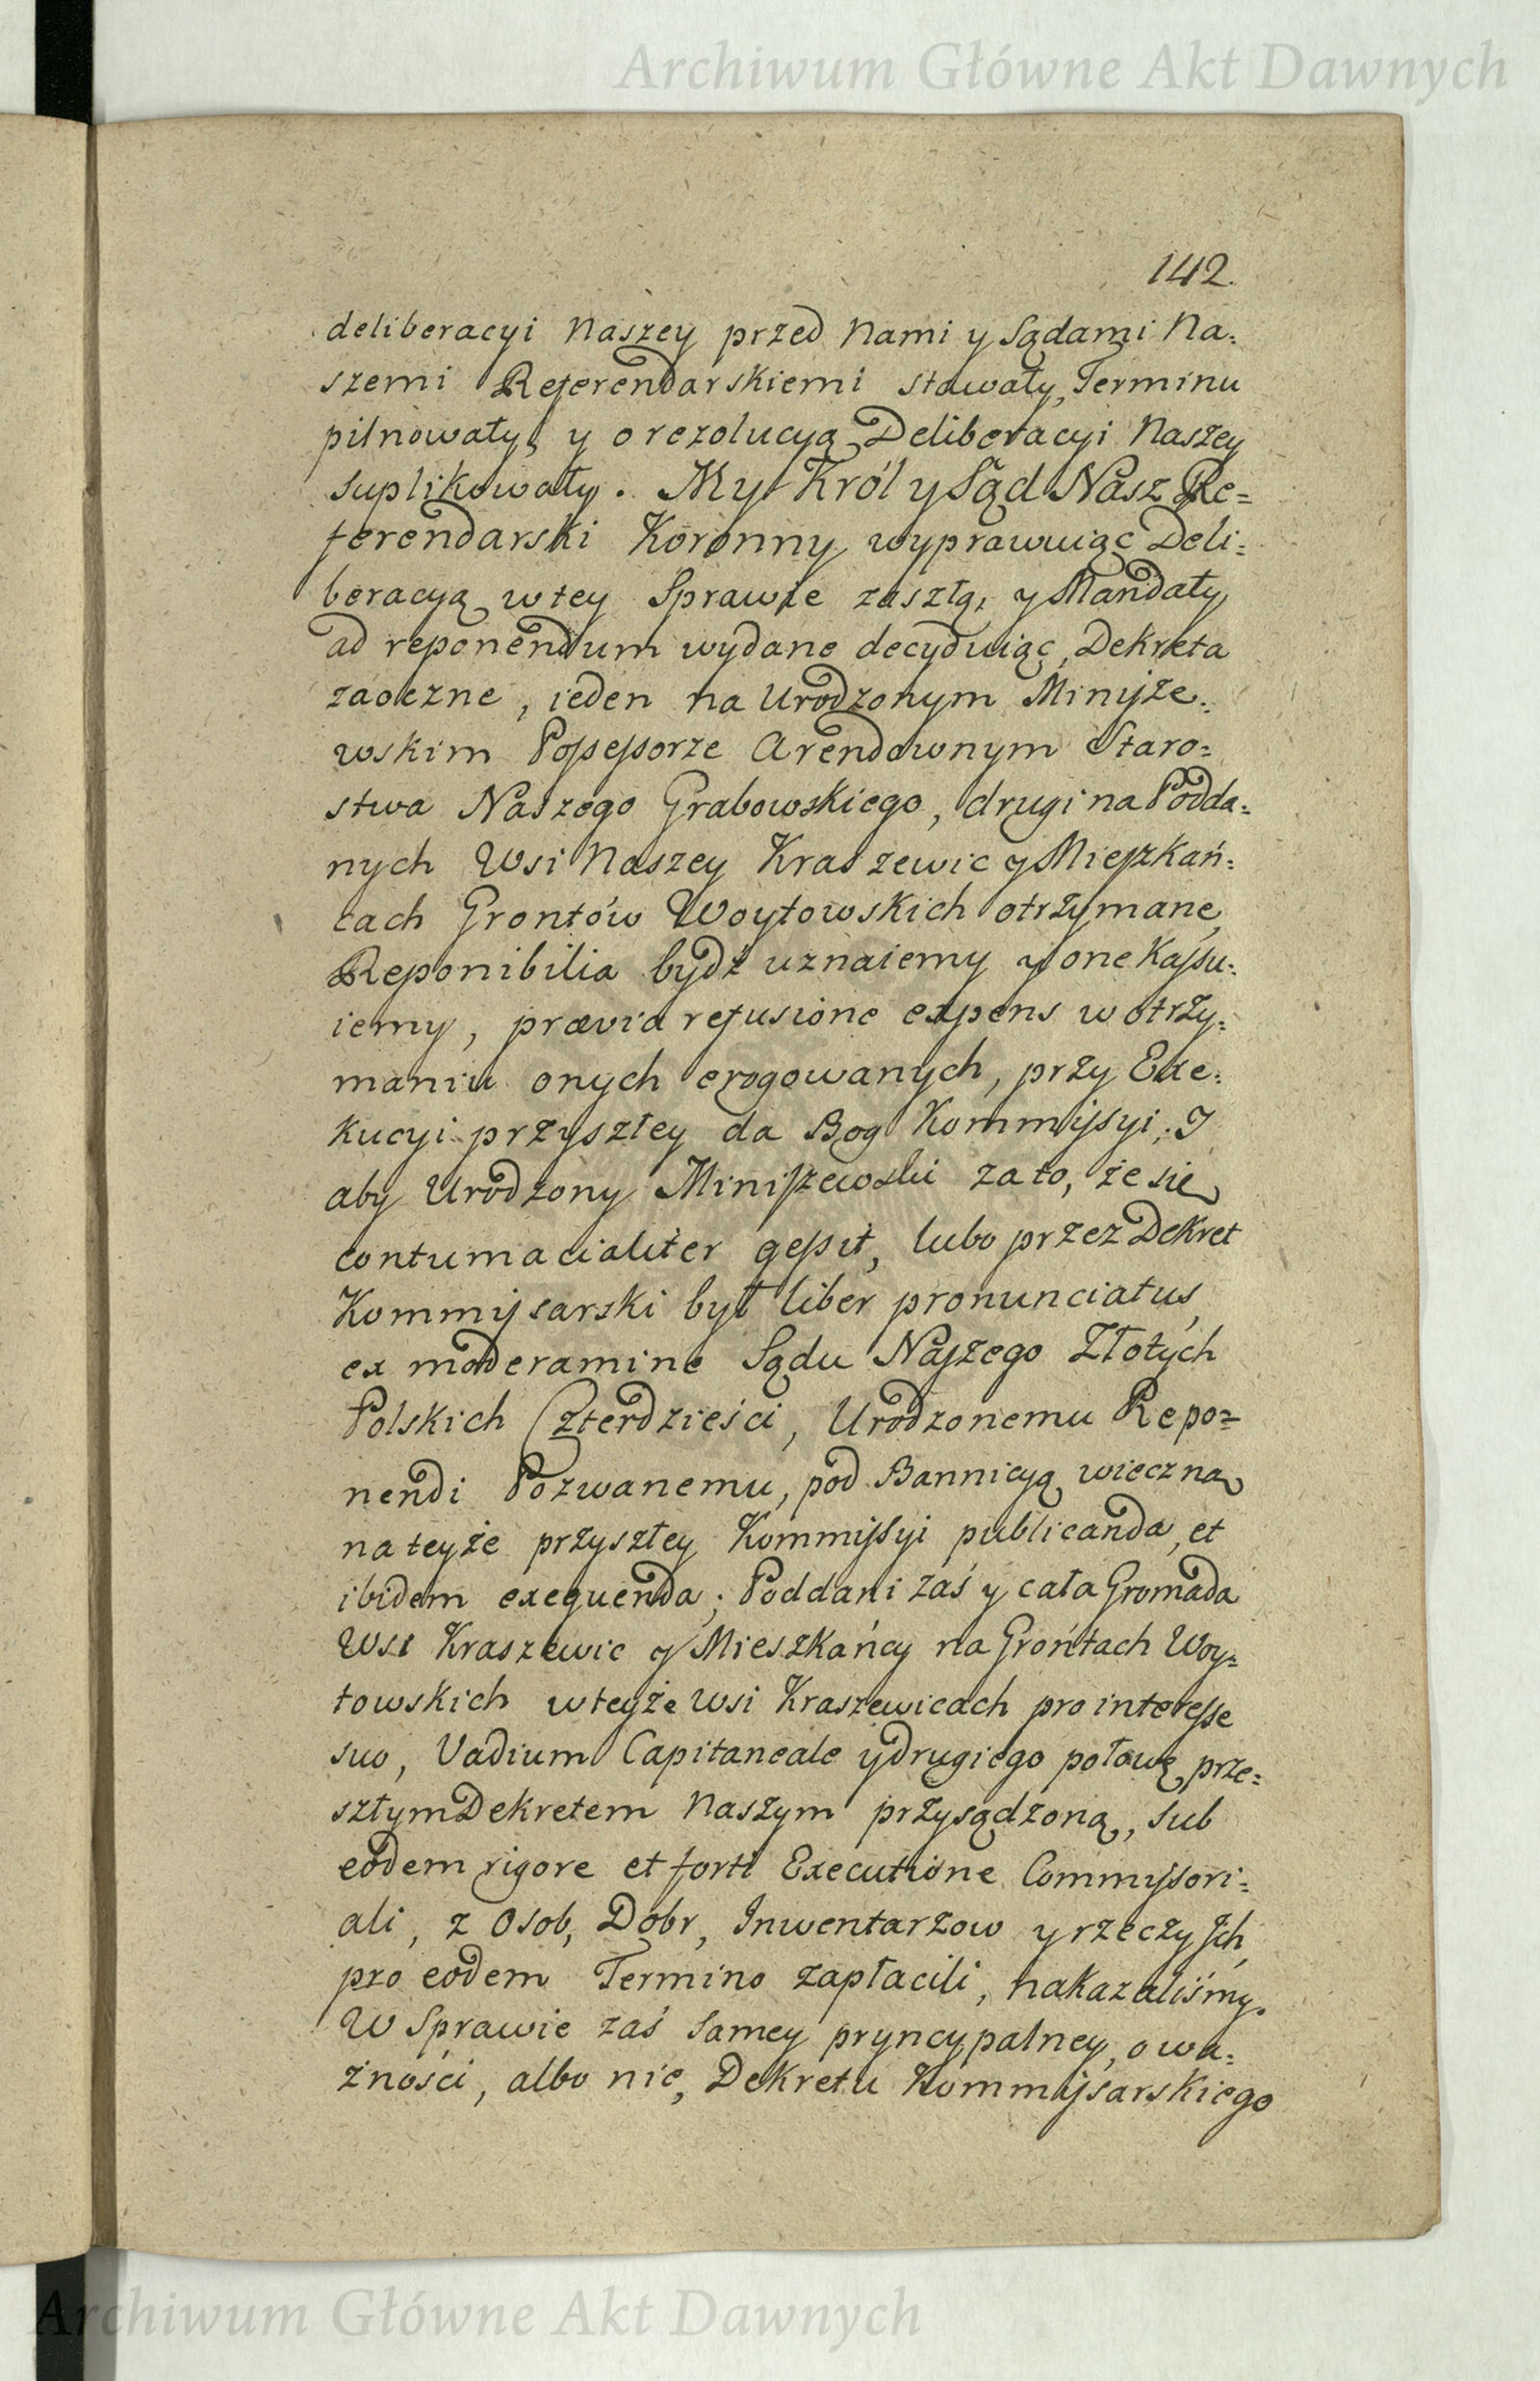 Archiwum Główne Akt Dawnych
142.
deliberacyi Naszey przed Nami y Sądami Na=
szemi Referendarskiemi stawały, Terminu
pilnowały, y o rezolucyą Deliberacyi Naszey
suplikowały. My Król y Sąd Nasz Re=
ferendarski Koronny wyprawuiąc Deli=
beracyą w tey Sprawie zaszłą, y Mandaty
ad reponendum wydane decyduiąc, Dekreta
zaoczne, ieden na Urodzonym Minisze=
wskim Possessorze Arendownym Staro=
stwa Naszego Grabowskiego, drugi na Podda=
nych Wsi Naszey Kraszewic y Mieszkań=
cach Grontów Woytowskich otrzymane,
Reponibilia bydź uznaiemy y one Kassu=
iemy, prævia refusione expens w otrzy=
maniu onych erogowanych, przy Exe=
kucyi przyszłey da Bog Kommissyi; I
aby Urodzony Miniszewski za to, że się
contumacialiter gessit, lubo przez Dekret
Kommissarski był liber pronunciatus,
ex moderamine Sądu Naszego Złotych
Polskich Czterdzieści, Urodzonemu Repo=
nendi Pozwanemu, pod Bannicyą wieczną
na teyże przyszłey Kommissyi publicanda, et
ibidem exequenda; Poddani zaś y cała Gromada
Wsi Kraszewic y Mieszkańcy na Grontach Woy=
towskich w teyże Wsi Kraszewicach pro interesse
suo, Vadium Capitaneale y drugiego połowę prze=
szłym Dekretem Naszym przysądzoną, sub
eodem rigore et forti Executione Commissori=
ali, z Osob, Dobr, Inwentarzow y rzeczy Ich,
pro eodem Termino zapłacili, nakazaliśmy.
W Sprawie zaś samey pryncypalney, o wa=
żności, albo nie, Dekretu Kommissarskiego
Archiwum Główne Akt Dawnych